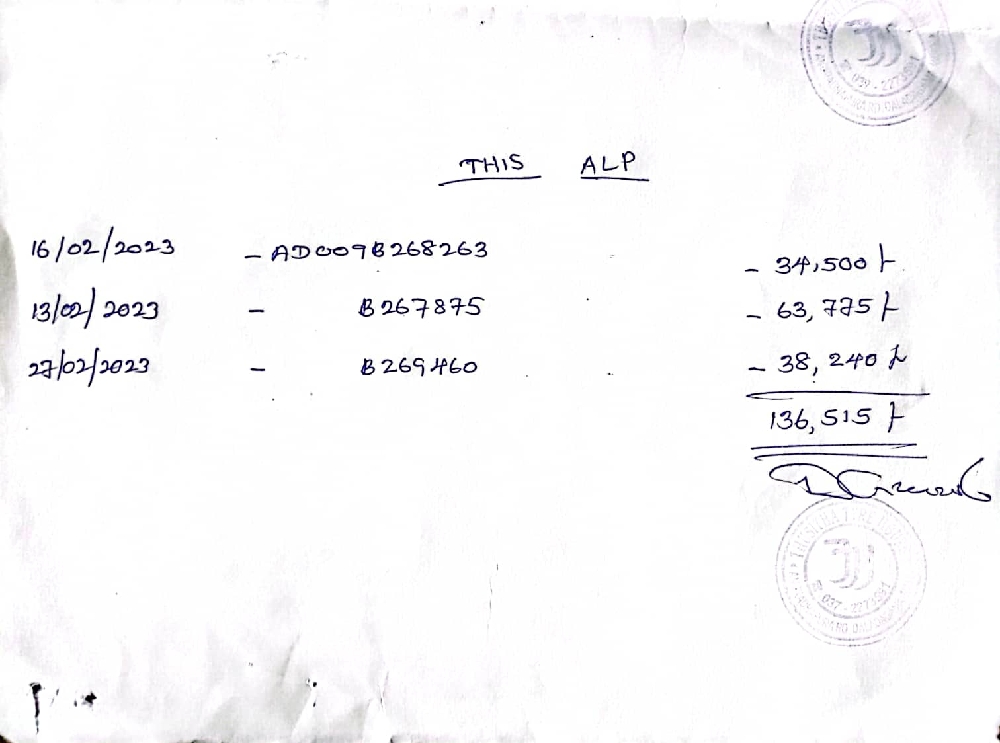 THIS ALP
16/02/2023 - AD009B268263 - 34,500/-
13/02/2023 - B267875 - 63,775/-
27/02/2023 - B269460 - 38,240/-
136,515/-